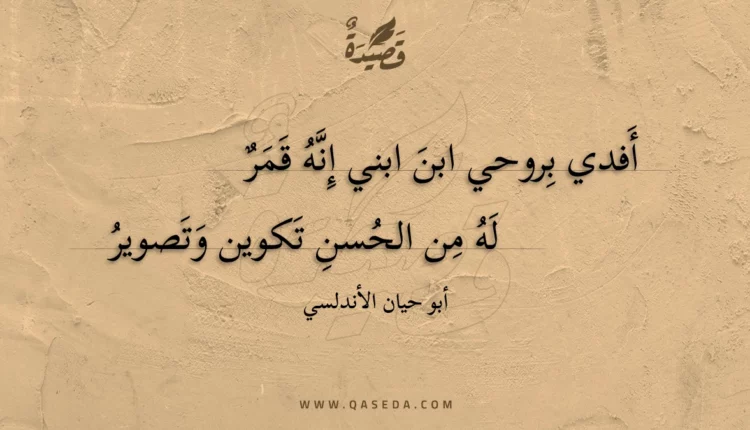 قَصِيْدَةٌ
أَفدي بِروحي ابنَ ابني إِنَّهُ قَمَرٌ
لَهُ مِن الحُسنِ تَكوين وَتَصويرُ
أبو حيان الأندلسي
WWW.QASEDA.COM